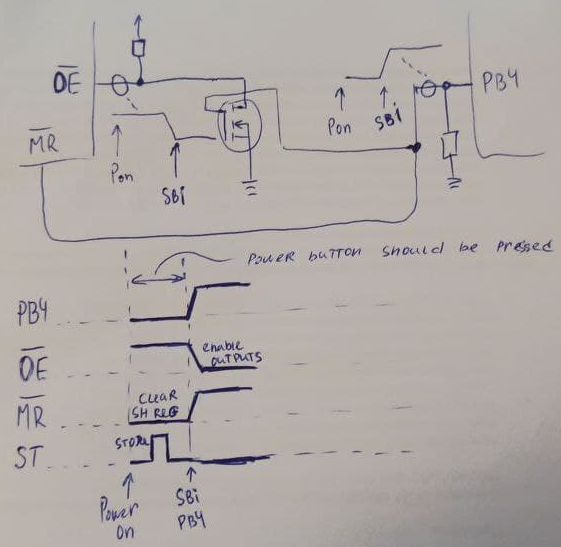 OE
PB4
MR
Pon
SBi
Pon
SBi
Power button should be pressed
PB4
OE
enable
outputs
MR
CLEAR
SH REG
ST
STORE
Power
On
SBi
PB4